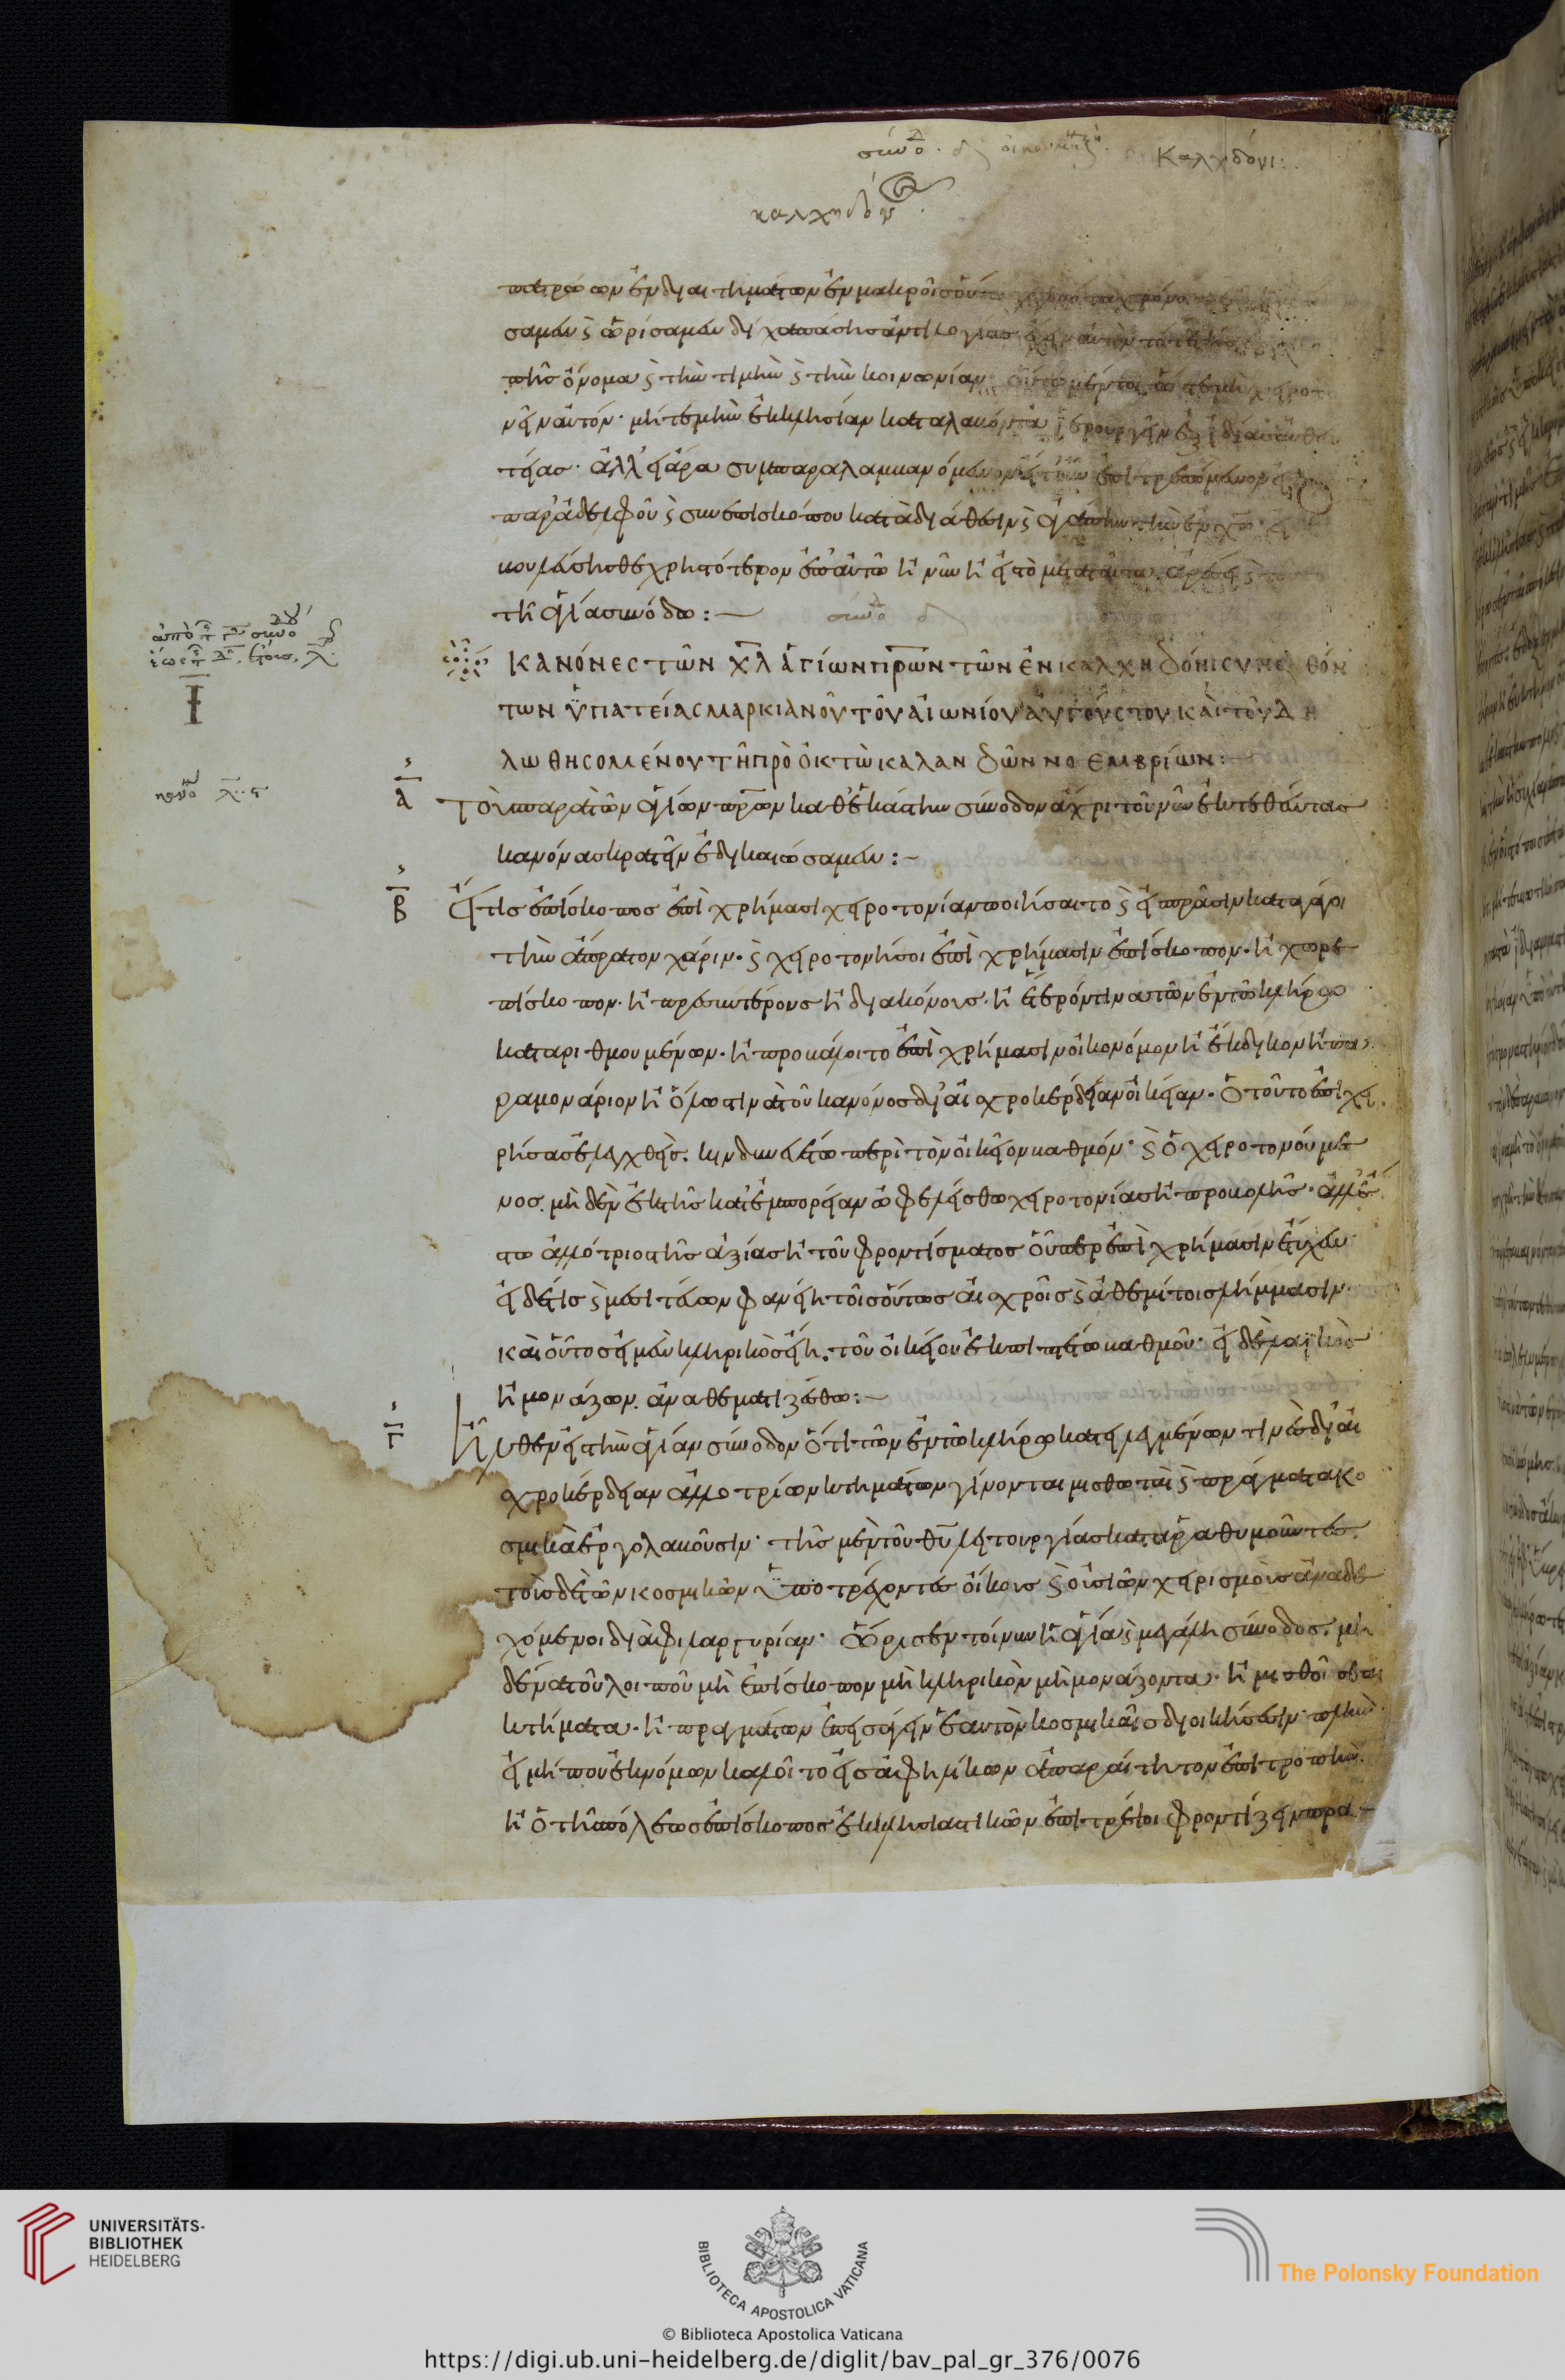 καλχηδόνι
Καλχιδόνι:
πατρώων ἐνδιαιτημάτων ἐν μακροῖς οὕτω χρόνοις
σαμεν καὶ ὡρίσαμεν δίχα πάσης ἀντιλογίας ἔχειν αὐτὸν τό τε τῆς
πῆς ὄνομα καὶ τὴν τιμὴν καὶ τὴν κοινωνίαν· οὕτω μέντοι ὥστε μὴ χειροτο
νεῖν αὐτόν· μήτε μὴν ἐκκλησίαν καταλαβόντα ἱερουργεῖν ἐξ ἰδίας αὐθεν
τείας· ἀλλ' εἰ ἄρα συμπαραλαμβανόμενον ἤτουν ἐπιτρεπόμενον εἰ
παρ' ἀδελφοῦ καὶ συνεπισκόπου κατὰ διάθεσιν καὶ ἀγάπην τὴν ἐν χω
βουλεύσησθε χρηστότερον ἐπ' αὐτῶ ἢ νῦν ἢ εἰς τὸ μετὰ ταῦτα ἀρέσει καὶ τοῦτο
τῆ ἁγία συνόδω:–
ΚΑΝΌΝΕC ΤΩ͂Ν ΧΛ ἉΓΊΩΝ ΠΡΩΝ ΤΩ͂Ν ἘΝ ΚΑΛΧΗΔΌΝΙ CΥΝΕΛΘΌΝ
ΤΩΝ ὙΠΑΤΕΊΑC ΜΑΡΚΙΑΝΟΥ͂ ΤΟΥ͂ ΑἸΩΝΊΟΥ ΑΥ̓ΓΟΎCΤΟΥ ΚΑῚ ΤΟΥ͂ ΔΗ
ΛΩΘΗCΟΜΈΝΟΥ ΤΗ͂ ΠΡῸ ὈΚΤῺ ΚΑΛΑΝΔΩ͂Ν ΝΟΕΜΒΡΊΩΝ:–
Α Τοὺς παρὰ τῶν ἁγίων πρων καθ' ἑκάστην σύνοδον ἄχρι τοῦ νῦν ἐκτεθέντας
κανόνας κρατεῖν ἐδικαιώσαμεν:–
Β Εἴ τις ἐπίσκοπος ἐπὶ χρήμασι χειροτονίαν ποιήσαιτο καὶ εἰς πρᾶσιν καταγάγοι
τὴν ἄπρατον χάριν· καὶ χειροτονήσοι ἐπὶ χρήμασιν ἐπίσκοπον· ἢ χωρε
πίσκοπον· ἢ πρεσβυτέρους ἢ διακόνους· ἢ ἕτερόν τινα τῶν ἐν τῶ κλήρω
καταριθμουμένων· ἢ προβάλοιτο ἐπὶ χρήμασιν οἰκονόμον ἢ ἔκδικον ἢ πα
ραμονάριον ἢ ὅλως τινὰ τοῦ κανόνος δι' αἰσχροκέρδειαν οἰκείαν· ὁ τοῦτο ἐπιχει
ρήσας ἐλεγχθεὶς· κινδυνευέτω περὶ τὸν οἰκεῖον βαθμόν· καὶ ὁ χειροτονούμε
νος· μηδὲν ἐκ τῆς κατ' ἐμπορείαν ὠφελείσθω χειροτονίας ἢ προβολῆς· ἀλλ' ἔς
τω ἀλλότριος τῆς ἀξίας ἢ τοῦ φροντίσματος οὗπερ ἐπὶ χρήμασιν ἔτυχεν·
εἰ δέ τις καὶ μεσιτεύων φανείη τοῖς οὕτως αἰσχροῖς καὶ ἀθεμίτοις λήμμασιν·
καὶ οὗτος εἰ μὲν κληρικὸς εἴη· τοῦ οἰκείου ἐκπιπτέτω βαθμοῦ· εἰ δὲ λαϊκὸς
ἢ μονάζων· ἀναθεματιζέσθω:–
Γ Ἦλθεν εἰς τὴν ἁγίαν σύνοδον ὅτι τῶν ἐν τῶ κλήρω κατειλεγμένων τινὲς δι' αἰ
σχροκέρδειαν ἀλλοτρίων κτημάτων γίνονται μισθωταὶ καὶ πράγματα κο
σμικὰ ἐργολαβοῦσιν· τῆς μὲν τοῦ θυ λειτουργίας καταραθυμοῦντες·
τοῖς δὲ τῶν κοσμικῶν ὑποτρέχοντες οἴκοις καὶ οὐσιῶν χειρισμοὺς ἀναδε
χόμενοι διὰ φιλαργυρίαν· ὥρισεν τοίνυν ἡ ἁγία καὶ μεγάλη σύνοδος· μη
δένα τοῦ λοιποῦ μὴ ἐπίσκοπον μὴ κληρικὸν μὴ μονάζοντα· ἢ μισθοῦσθαι
κτήματα· ἢ πραγμάτων ἐπεισάγειν ἑαυτὸν κοσμικαῖς διοικήσεσιν· πλὴν
εἰ μή που ἐκ νόμων καλοῖτο εἰς ἀφηλίκων ἀπαραίτητον ἐπιτροπὴν·
ἢ ὁ τῆς πόλεως ἐπίσκοπος ἐκκλησιαστικῶν ἐπιτρέψοι φροντίζειν πρα
UNIVERSITÄTS-
BIBLIOTHEK
HEIDELBERG
BIBLIOTECA APOSTOLICA VATICANA
The Polonsky Foundation
© Biblioteca Apostolica Vaticana
https://digi.ub.uni-heidelberg.de/diglit/bav_pal_gr_376/0076